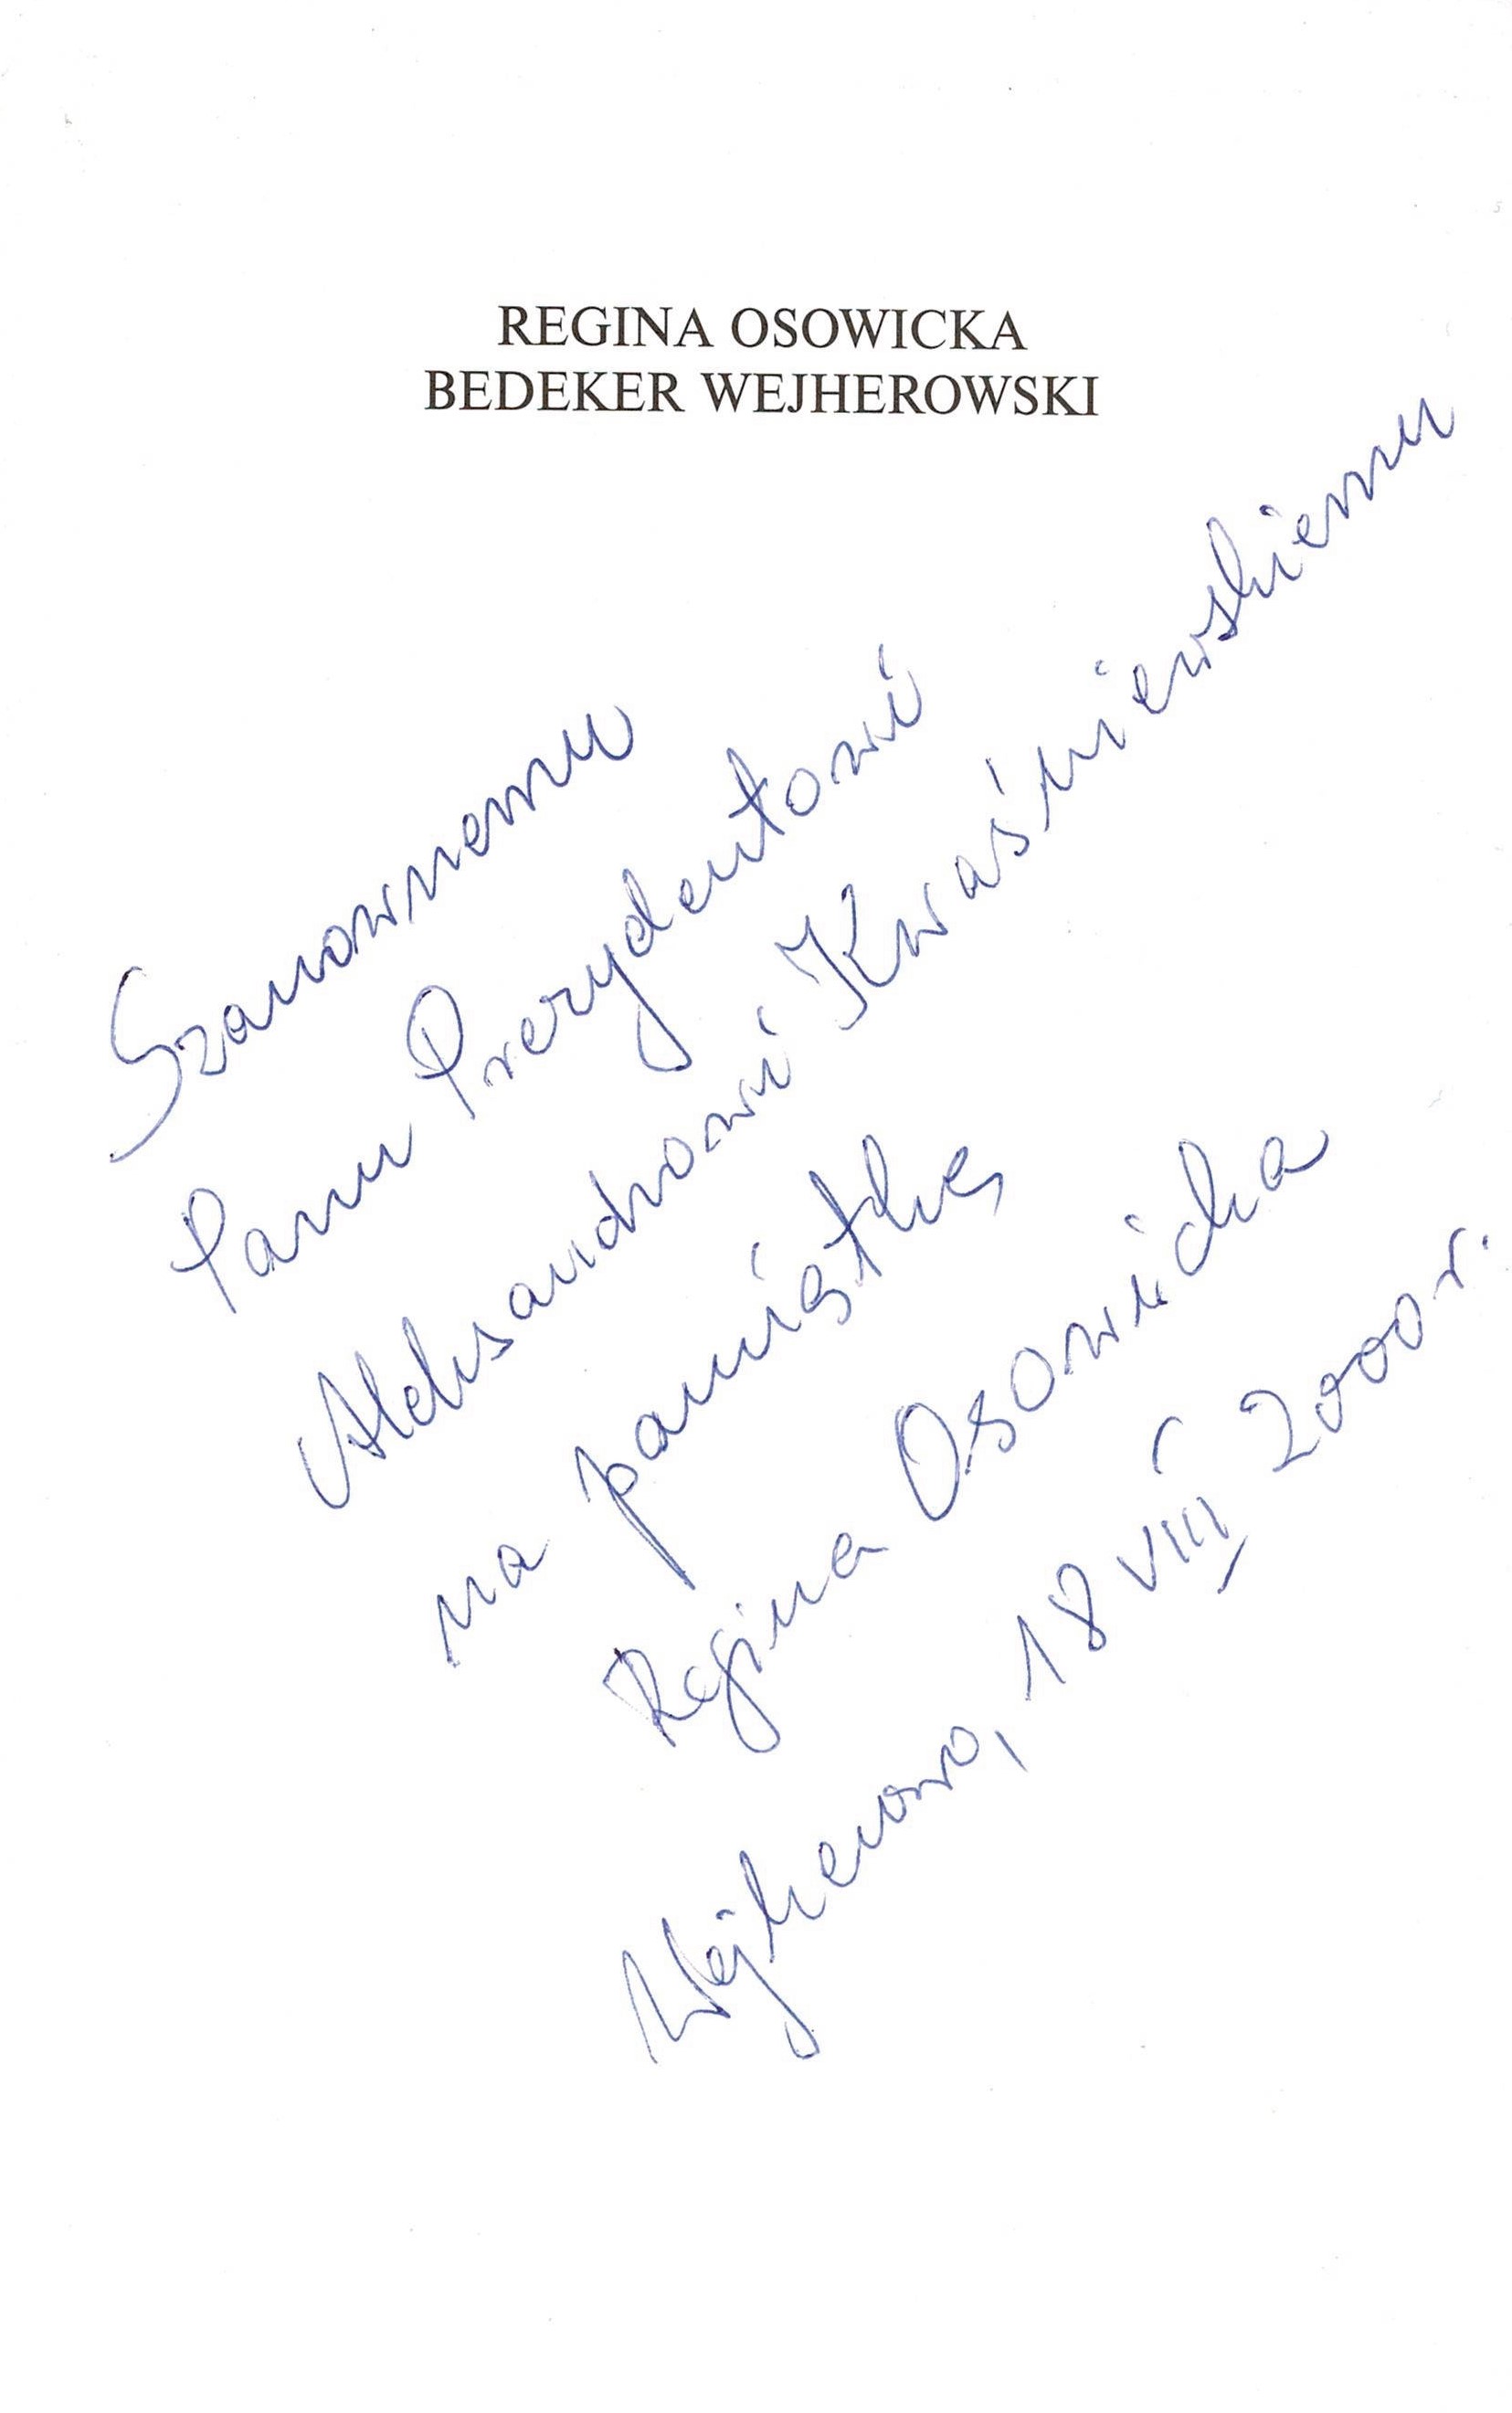 REGINA OSOWICKA
BEDEKER WEJHEROWSKI
Szanownemu
Panu Prezydentowi
Aleksandrowi Kwaśniewskiemu
na pamiątkę
Regina Osowicka
Wejherowo, 18 VIII 2000 r.